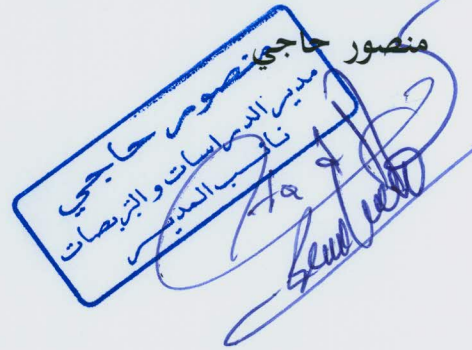 منصور حاجي
منصور حاجي
مدير الدراسات والتربصات
نائب المدير